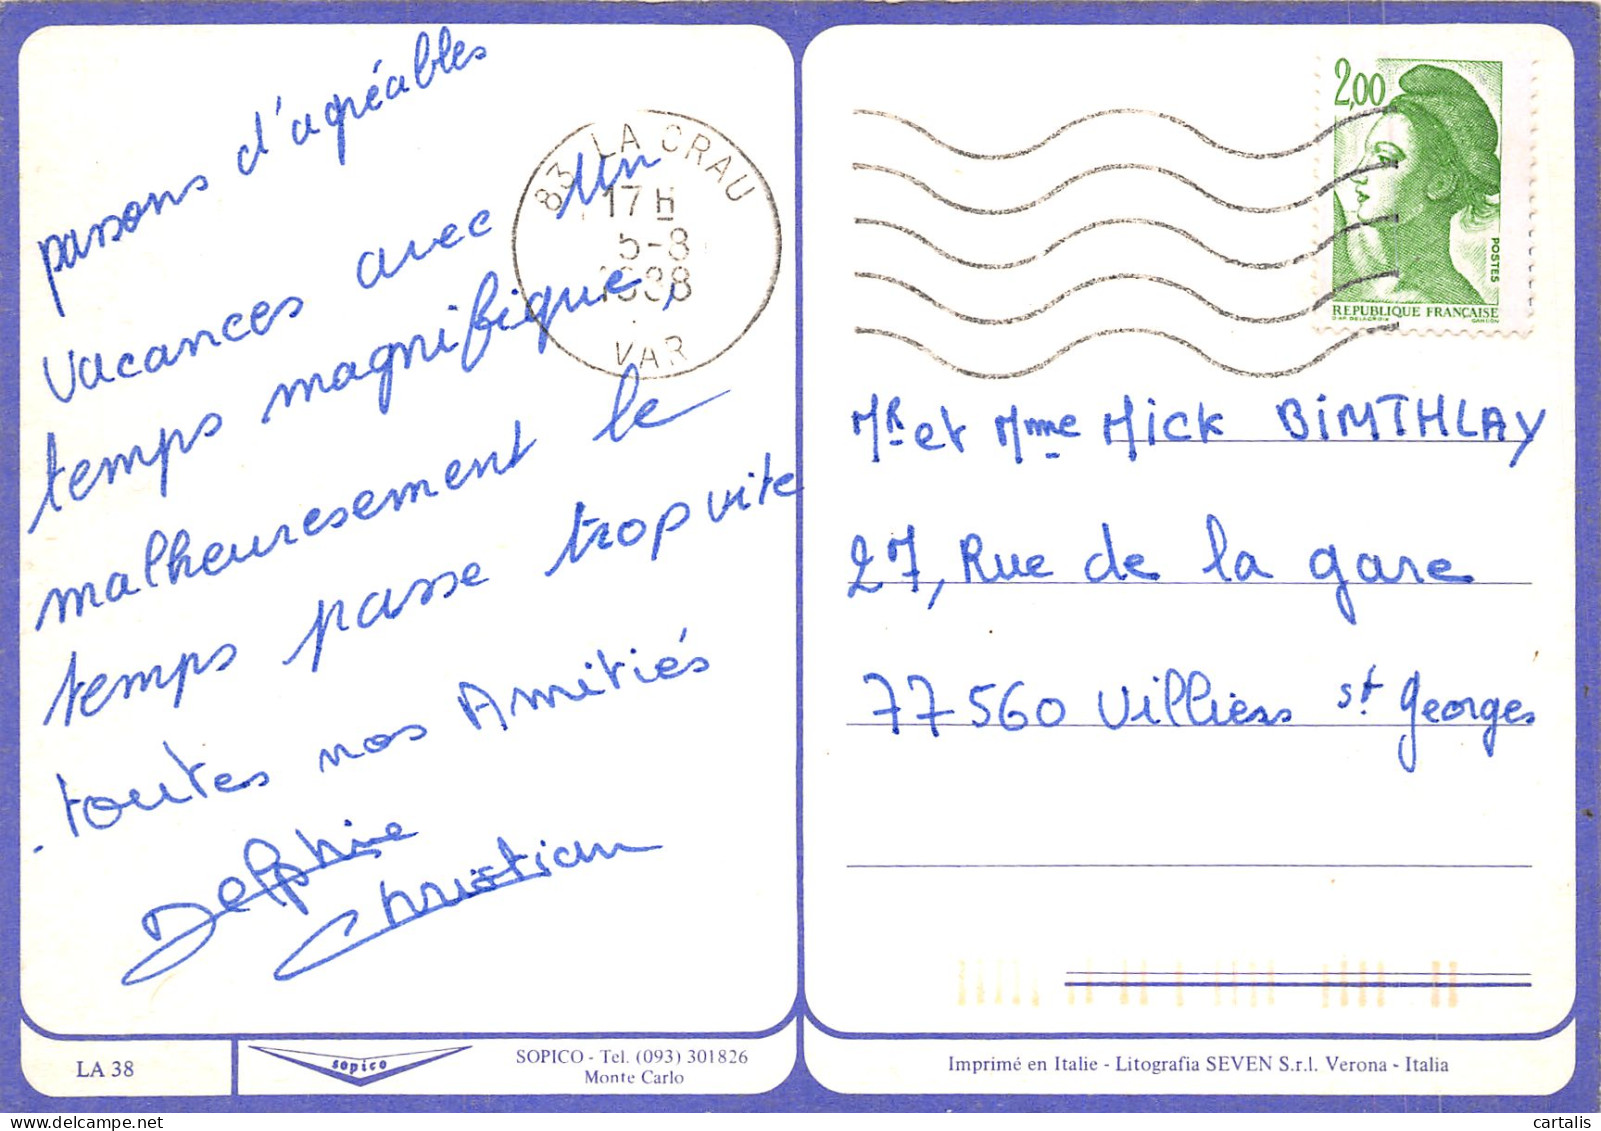 passons d'agréables
vacances avec un
temps magnifique,
malheuresement le
temps passe trop vite
toutes nos Amitiés
Delphine
Christian
83 LA CRAU
17 H
5-8
1988
VAR
2,00
POSTES
REPUBLIQUE FRANÇAISE
D'AP. DELACROIX GANDON
Mr et Mme Mick BIMTHLAY
27, Rue de la gare
77560 Villiers St Georges
LA 38
sopico
SOPICO - Tel. (093) 301826
Monte Carlo
Imprimé en Italie - Litografia SEVEN S.r.l. Verona - Italia
cartalis